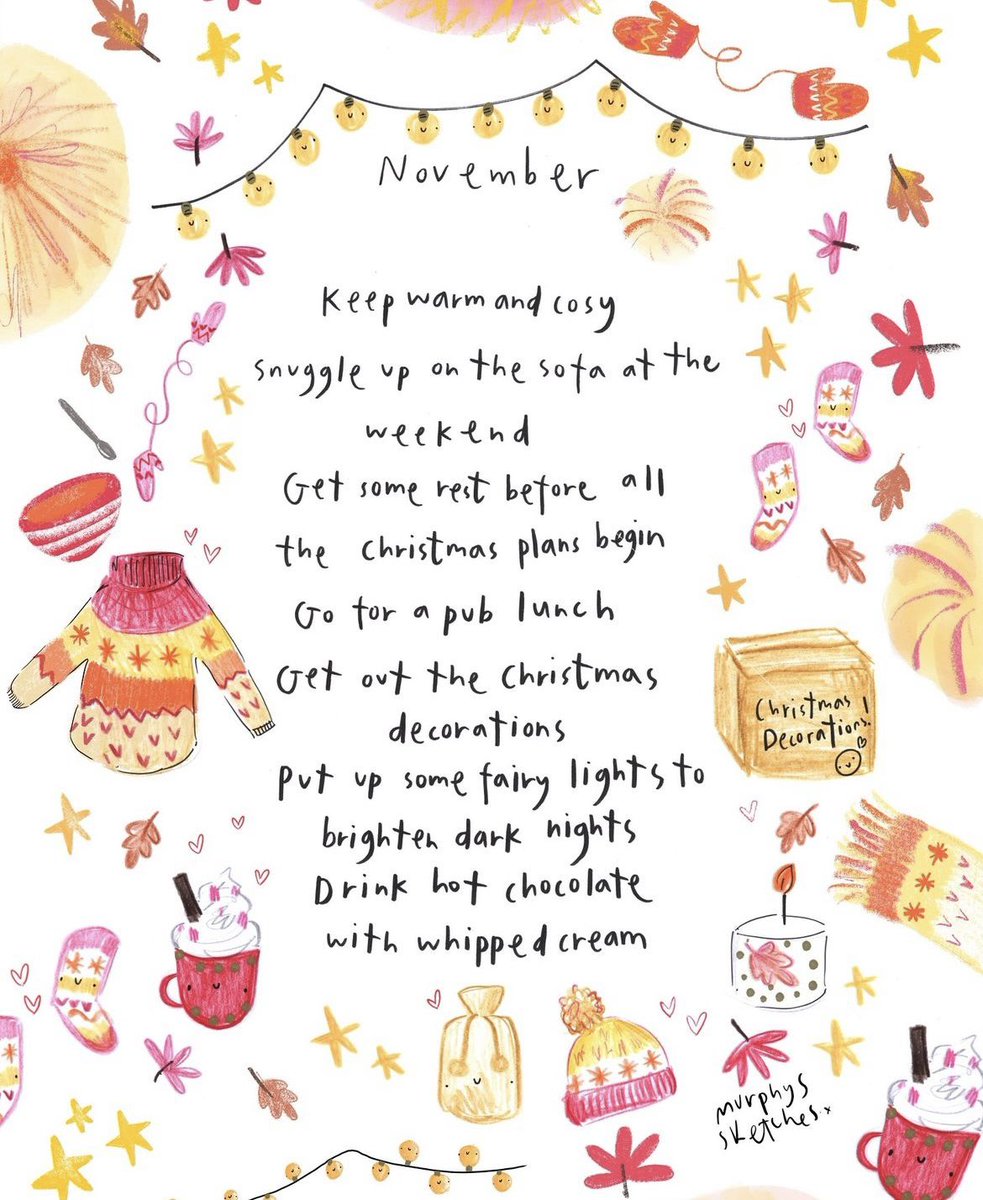 November
Keep warm and cosy
snuggle up on the sofa at the
weekend
Get some rest before all
the christmas plans begin
Go for a pub lunch
Get out the christmas
decorations
Put up some fairy lights to
brighten dark nights
Drink hot chocolate
with whipped cream
Christmas
Decorations!
murphys
sketches.x